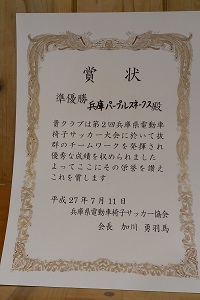 賞状
準優勝
兵庫パープルスネークス殿
貴クラブは第2回兵庫県電動車
椅子サッカー大会に於いて抜
群のチームワークを発揮され
優秀な成績を収められました
よってここにその栄誉を讃え
これを賞します
平成27年7月11日
兵庫県電動車椅子サッカー協会
会長 加川 勇羽馬